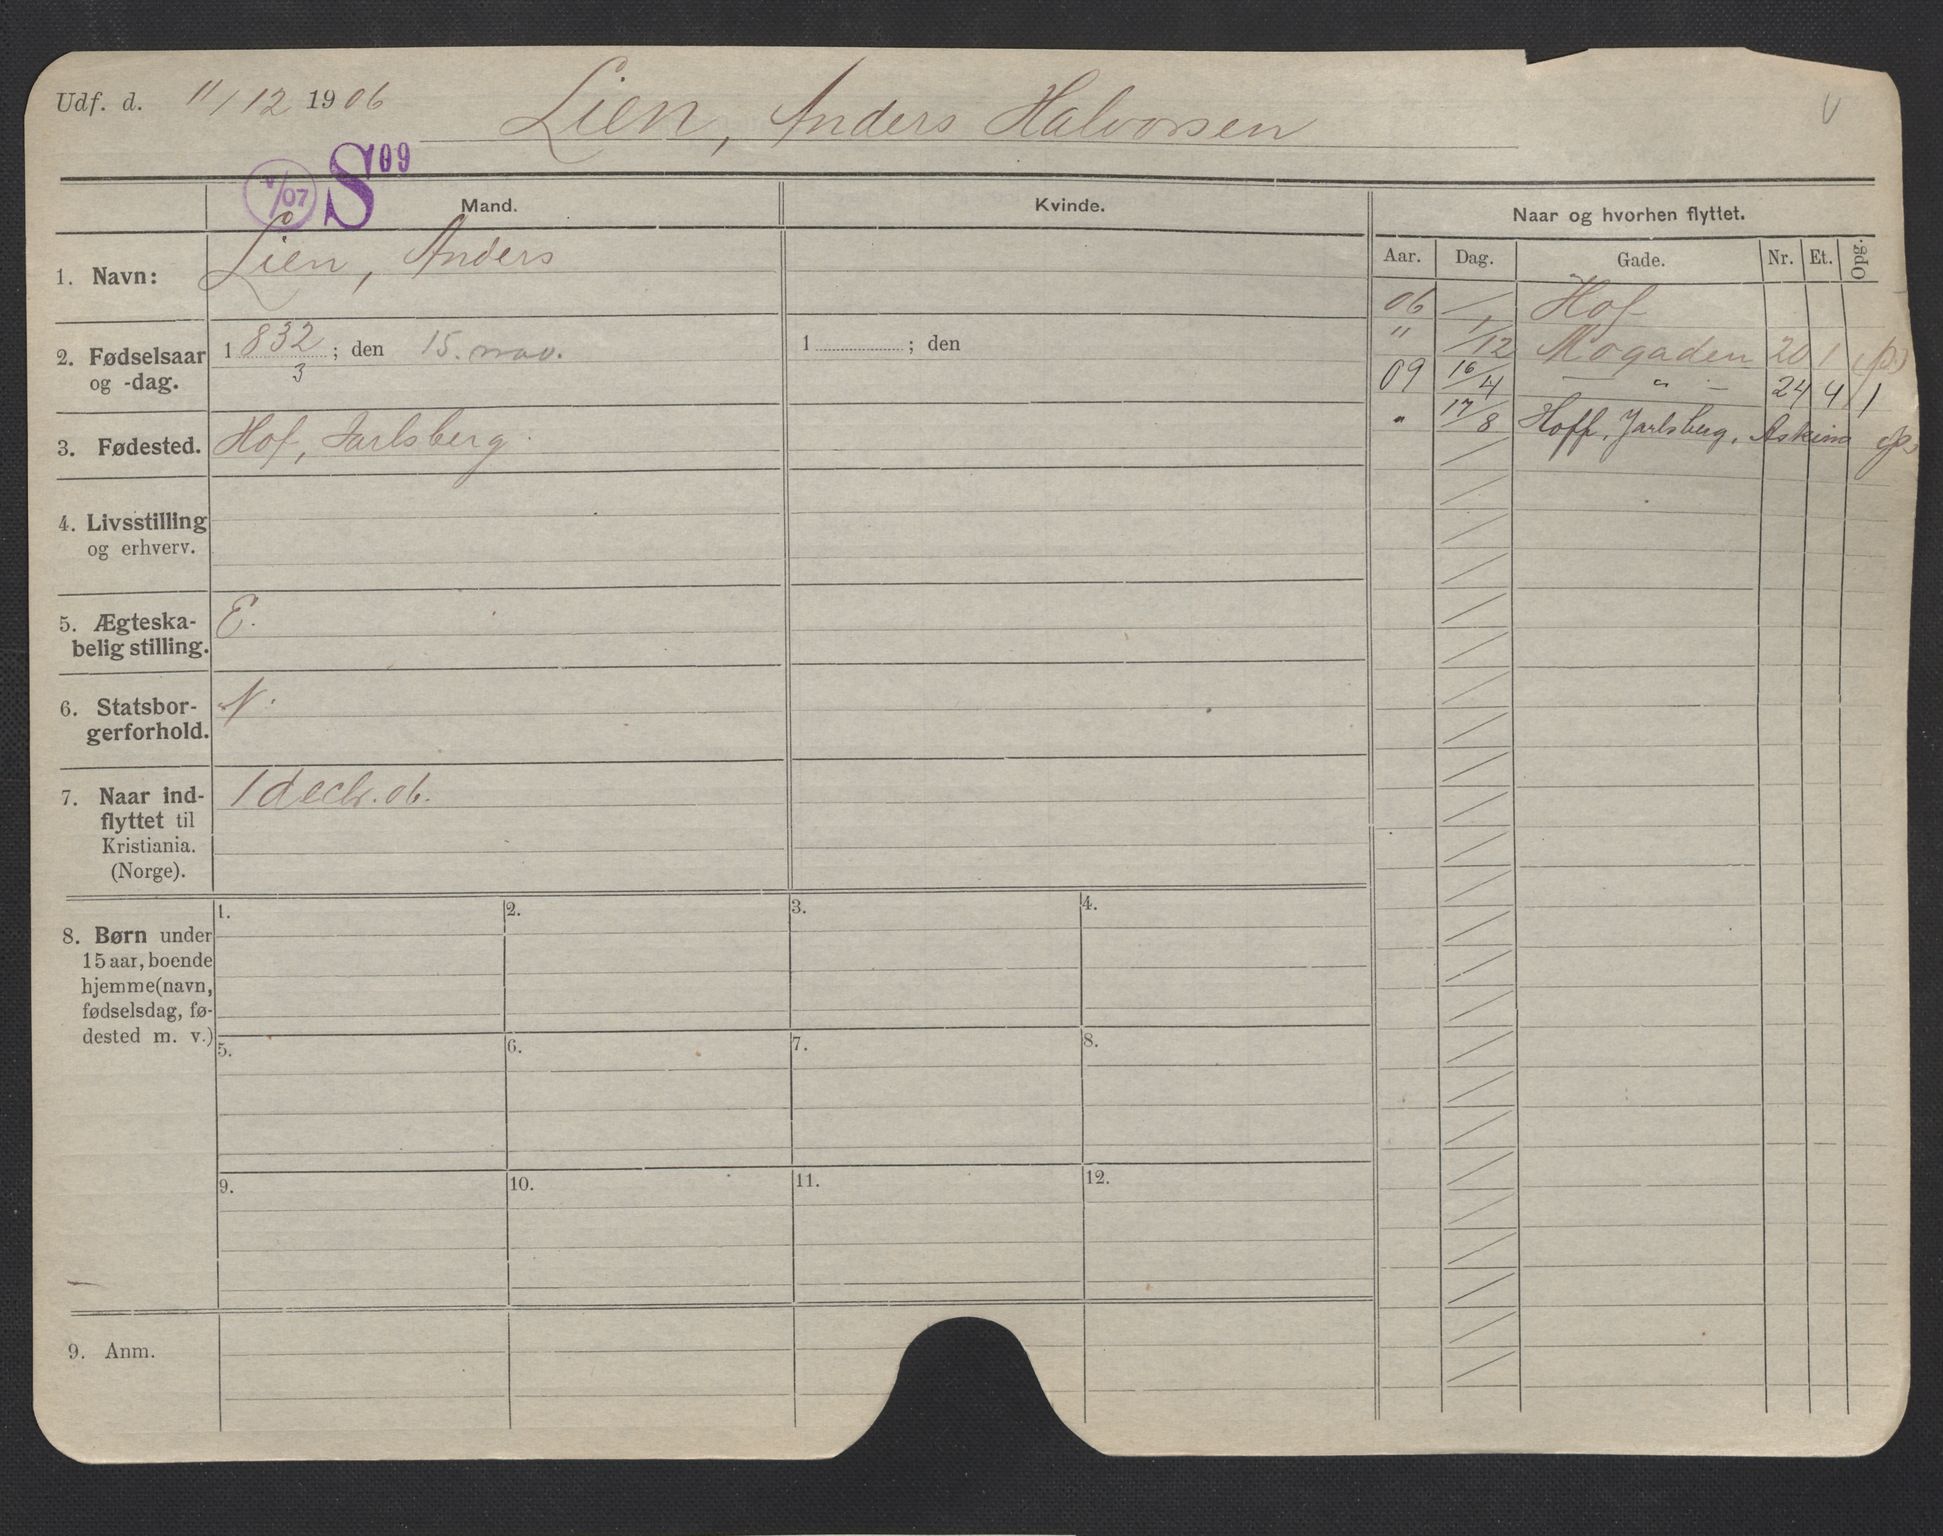 Udf. d. 11/12 1906 Lien, Anders Halvorsen
V
V/07 S09
Mand. Kvinde. Naar og hvorhen flyttet.
Aar. Dag. Gade. Nr. Et. Opg.
1. Navn: Lien, Anders
06 / Hof
" 1/12 Mogaden 20 1 (ps)
09 16/4 — " — 24 4 1
" 17/8 Hoff, Jarlsberg, ps
2. Fødselsaar 1832; den 15. nov. 1 ; den
og -dag. 3
3. Fødested. Hof, Jarlsberg.
4. Livsstilling
og erhverv.
5. Ægteska- E.
belig stilling.
6. Statsbor- N.
gerforhold.
7. Naar ind- 1 decbr. 06.
flyttet til
Kristiania.
(Norge).
8. Børn under
15 aar, boende
hjemme (navn,
fødselsdag, fø-
dested m. v.)
1. 2. 3. 4.
5. 6. 7. 8.
9. 10. 11. 12.
9. Anm.